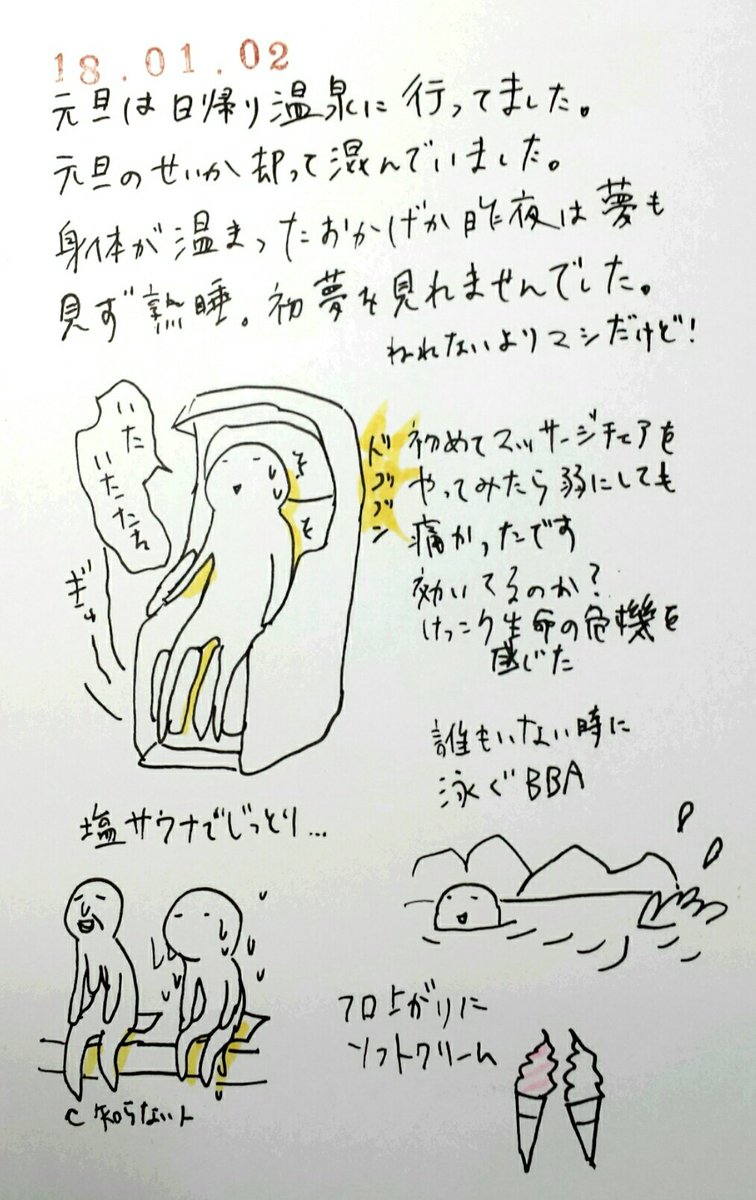 18.01.02
元旦は日帰り温泉に行ってました。
元旦のせいか却って混んでいました。
身体が温まったおかげか昨夜は夢も
見ず熟睡。初夢を見れませんでした。
ねれないよりマシだけど!
いた
いたたた
ギュ
初めてマッサージチェアを
やってみたら弱にしても
痛かったです
効いてるのか?
けっこう生命の危機を
感じた
誰もいない時に
泳ぐBBA
塩サウナでじっとり…
知らない人
フロ上がりに
ソフトクリーム